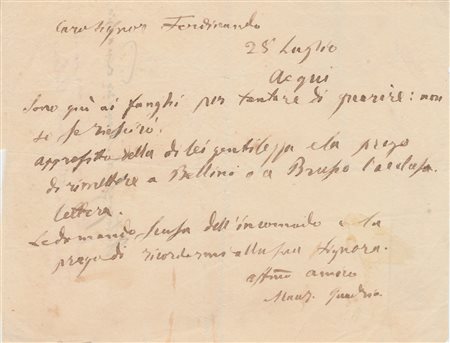 Caro Signor Ferdinando
28 Luglio
Acqui
Sono quì ai fanghi per tentare di guarire: non
so se riescirò.
approfitto della di lei gentilezza e la prego
di rimettere a Bellino o a Bruzzo l'acclusa
lettera.
Le domando scusa dell'incomodo e la
prego di ricordarmi alla sua Signora.
affmo amico
Maur.